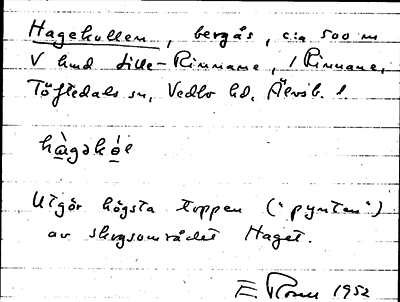 Hagekullen, bergås, c:a 500 m
V hmd Lille-Rinnane, 1 Rinnane,
Töftedals sn, Vedbo hd, Älvsb. l.
hàgəkól
Utgör högsta toppen ("pynten")
av skogsområdet Haget.
E 1952